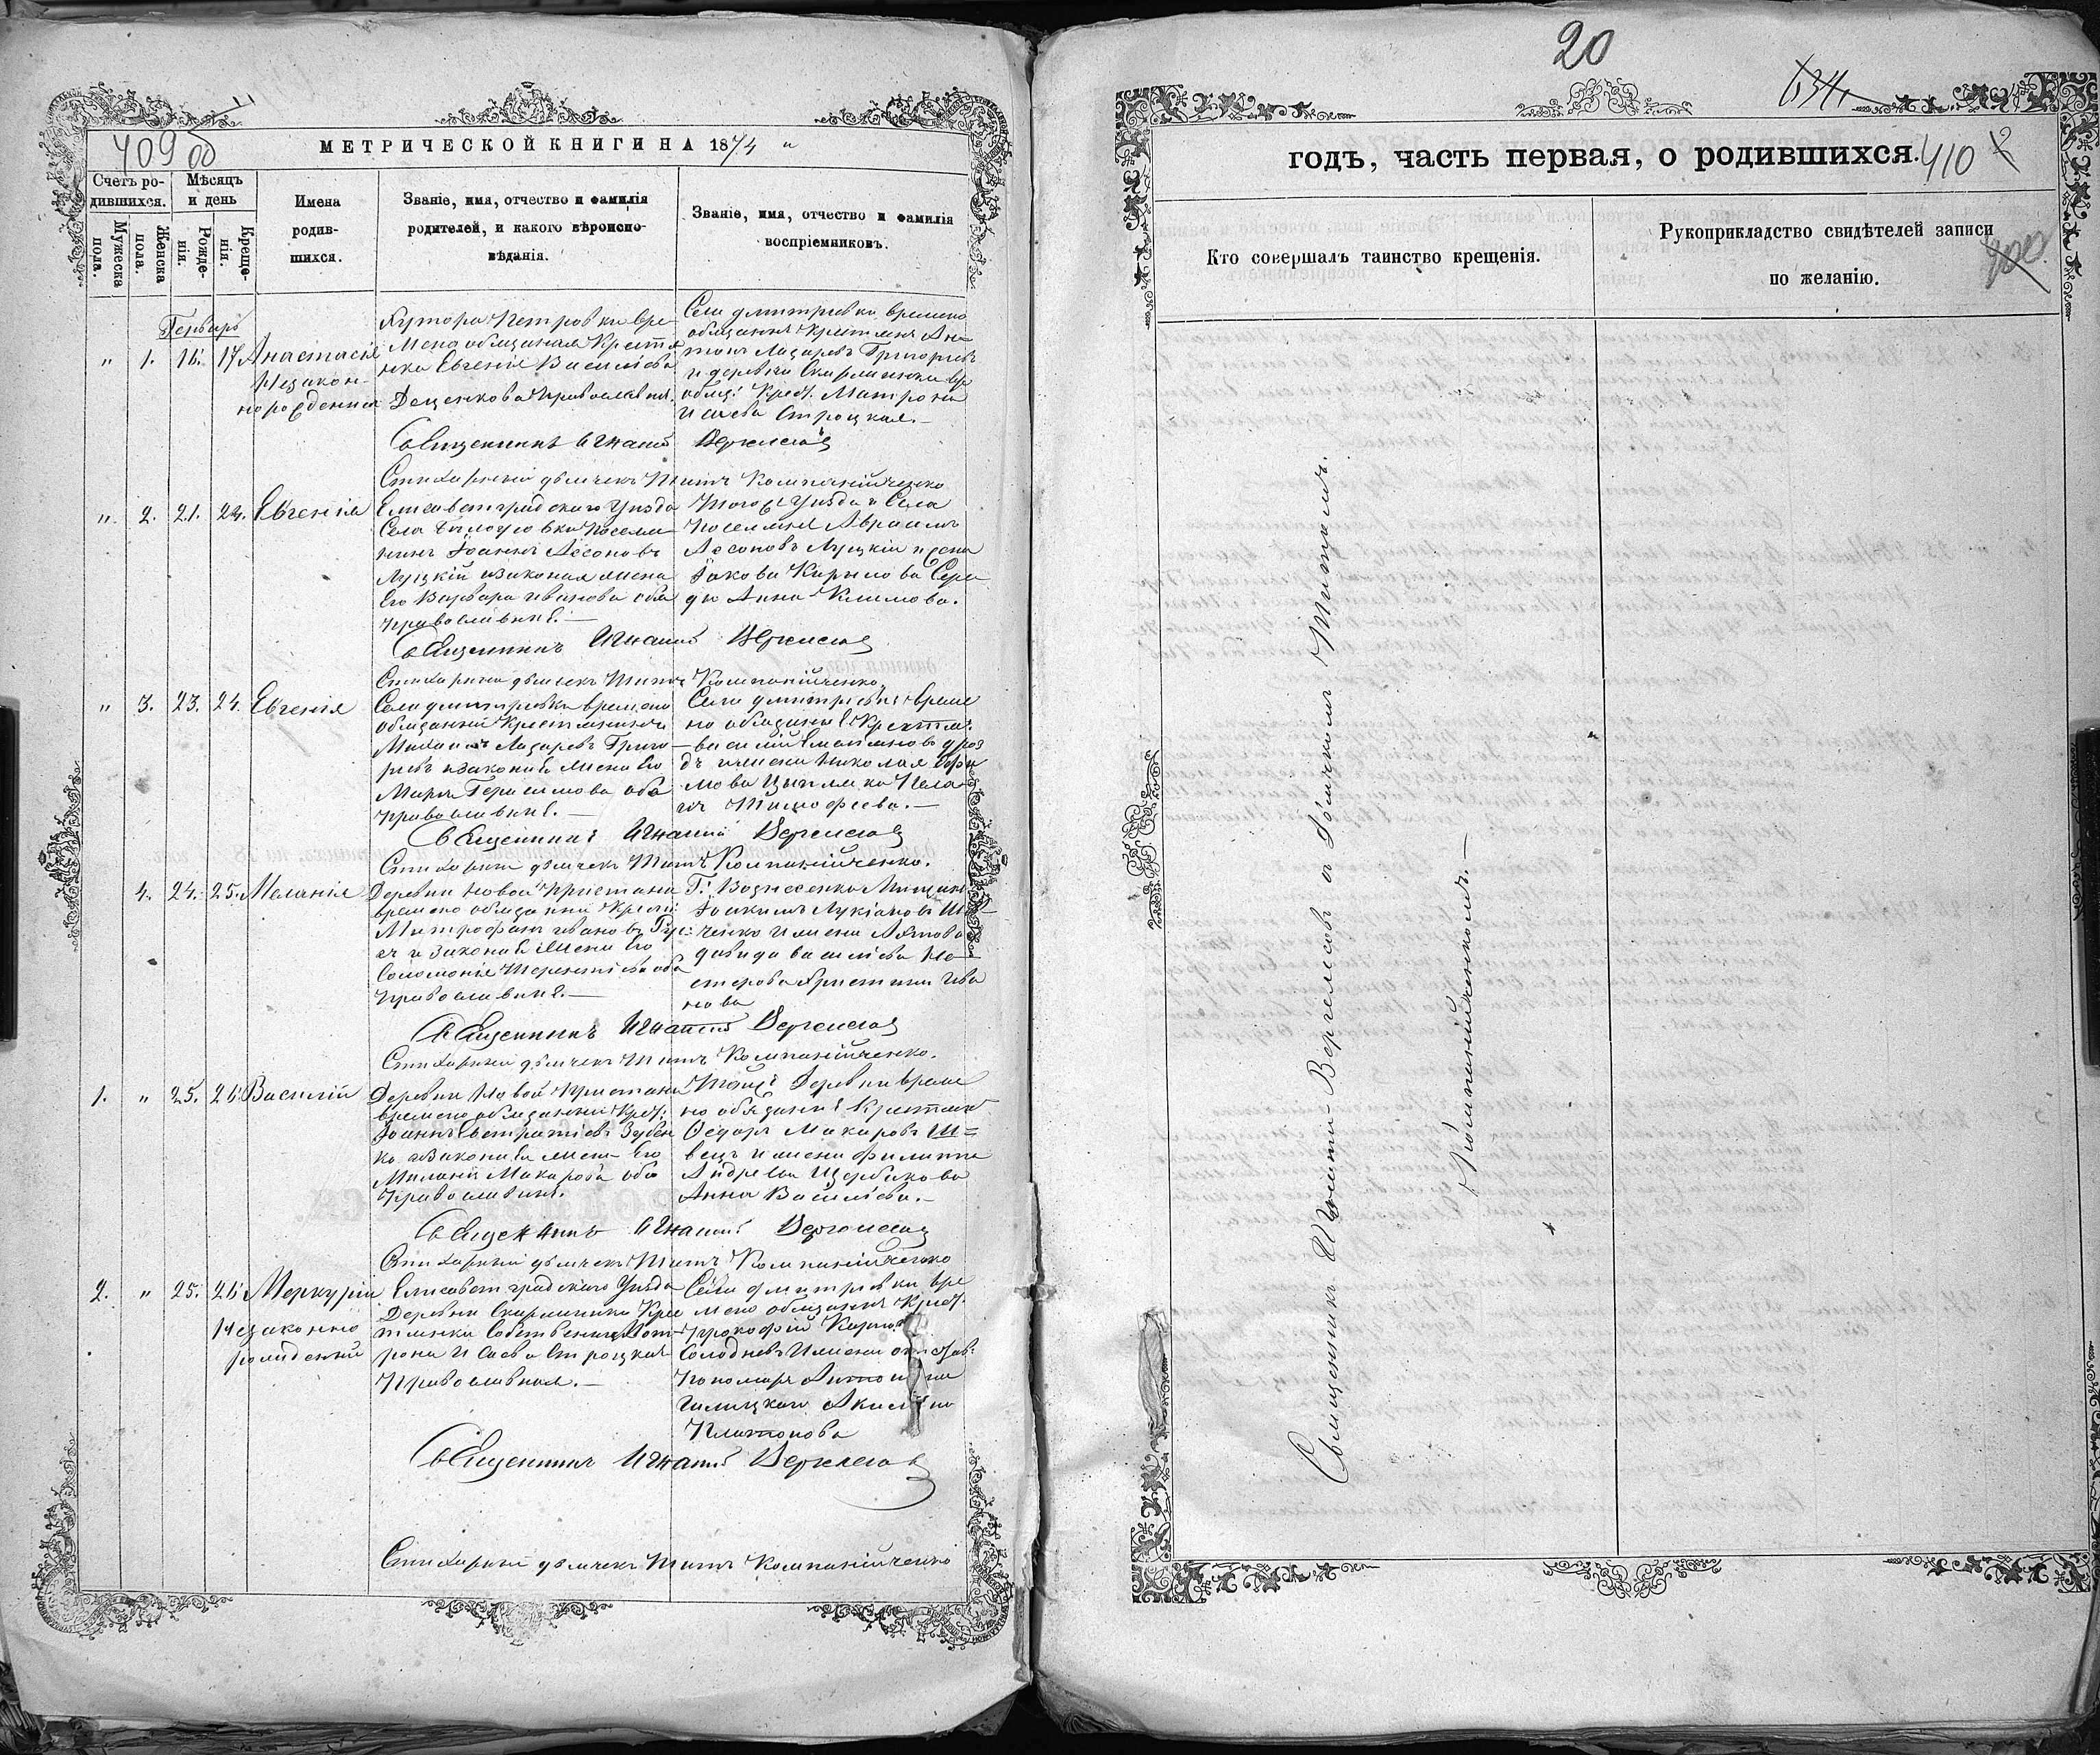 409 об
МЕТРИЧЕСКОЙ КНИГИ НА 1874
Счетъ ро-
дившихся.
Мѣсяцъ
и день
Мужеска
пола.
Женска
пола.
Рожде-
нія.
Креще-
нія.
Имена
родив-
шихся.
Званіе, имя, отчество и фамилія
родителей, и какого вѣроиспо-
вѣданія.
Званіе, имя, отчество и фамилія
воспріемниковъ.
Генварь
" 1. 16. 17 Анастасія
Незакон-
норожденная
Хутора Петровки вре-
мено обязаная Крестя
нка Евгенія Василіева
Деценкова Православная.
Села Дмитриевки времено
обязанный Крестьянинъ Ан-
тонъ Лазаревъ Григориевъ
и деревни Скаржинки вре
обяз: Крест. Матрона
Исаева Строцкая.
Священникъ Игнатій Вержелесов
Стихарный дьячекъ Титъ Компанійченко
" 2. 21. 24. Евгенія
Елисаветградского Уѣзда
Села поселя-
нинъ Іоаннъ
Луцкій и законая жена
Его Варвара Иванова оба
православные.
Того Уѣзда и Села
поселяне Авраамъ
Луцкій и жена
Іакова Кирилова Сере
ды Анна Климова.
Священникъ Игнатій Вержелесов
Стихарный дьячекъ Титъ Компанійченко.
" 3. 23. 24. Евгенія
Села Дмитриевки времено
обязанный Крестьянинъ
Михаилъ Лазаревъ Григо-
риевъ и законая жена Его
Мария Герасимова оба
православные.
Села Дмитриевки време
но обязаные Крестья:
Василій дроз
дъ и жена Николая
мова Цыплика Пела
гія Тимофеева.
Священникъ Игнатій Вержелесов
Стихарный дьячекъ Титъ Компанійченко.
4. 24. 25. Меланія
Деревни Новой Пристани
времено обязанный Крест:
Митрофанъ Ивановъ
и законая жена Его
Соломонія Терентіева оба
православные.
Г. Вознесенка Мищанинъ
Іоакимъ Лукіановъ
ченко и жена
Давида Василіева Не-
стерова Христина Ива
нова
Священникъ Игнатій Вержелесов
Стихарный дьячекъ Титъ Компанійченко.
1. " 25. 26. Василій
Деревни Новой Пристани
времено обязанный Крест:
Іоаннъ Евстратіевъ Зубен
ко и законая жена Его
Меланія Макарова оба
православные.
Тойже Деревни време
но обязаные Крестьян
Ѳедоръ Макаровъ Ш=
вецъ и жена Филиппа
Андреева Щербакова
Анна Василіева.
Священникъ Игнатій Вержелесов
Стихарный дьячекъ Титъ Компанійченко
2. " 25. 26. Меркурій
Незаконно
рожденный
Елисаветградского Уѣзда
Деревни Скаржинки Крес
тьянки собственицы Мат
рона Исаева Строцкая
Православная.
Села Дмитриевки вре
мено обязанный Крест.
Прокофій Карпов
Солодневъ и жена
пономаря
Акилина
Платонова
Священникъ Игнатій Вержелесов
Стихарный дьячекъ Титъ Компанійченко
20
634
годъ, часть первая, о родившихся.
410
400
Кто совершалъ таинство крещенія.
Рукоприкладство свидѣтелей записи
по желанію.
Священникъ Игнатій Вержелесов съ дьячкомъ Титомъ
Компанійченкомъ.